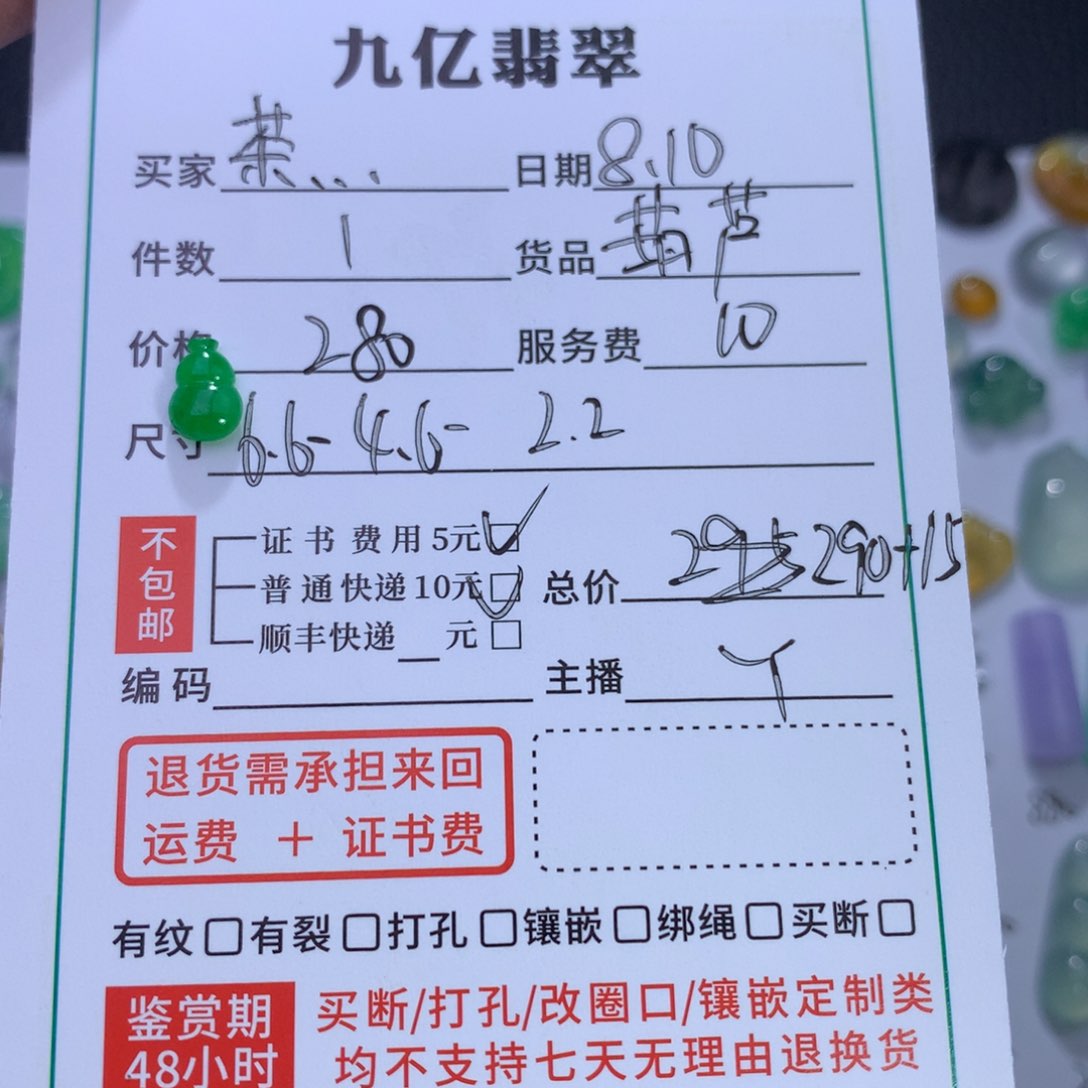 九亿翡翠
买家 茶... 日期 8.10
件数 1 货品 葫芦
价格 280 服务费 10
尺寸 6.6- 4.6- 2.2
不包邮
证书费用5元
普通快递10元 总价 290+15
顺丰快递__元
编码 主播 丫
退货需承担来回
运费 + 证书费
有纹 有裂 打孔 镶嵌 绑绳 买断
鉴赏期 买断/打孔/改圈口/镶嵌定制类
48小时 均不支持七天无理由退换货